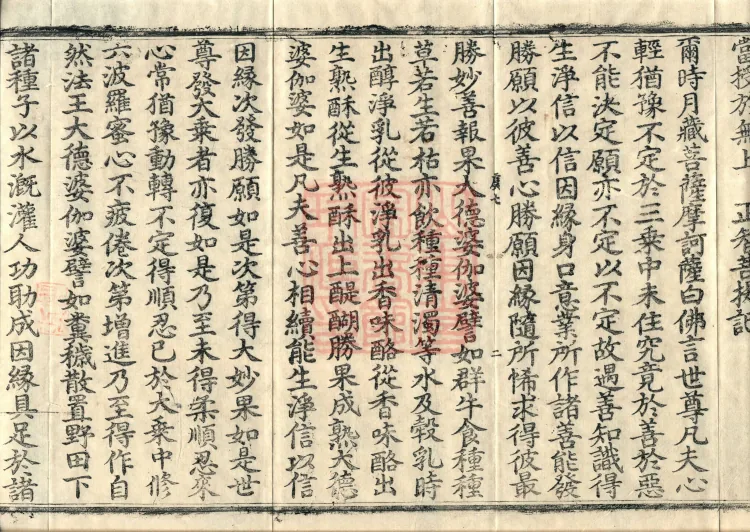 當授於無上正知菩提記
爾時月藏菩薩摩訶薩白佛言世尊凡夫心
輕猶豫不定於三乘中未住究竟於善於惡
不能決定願亦不定以不定故遇善知識得
生淨信以信因緣身口意業所作諸善能發
勝願以彼善心勝願因緣隨所悕求得彼最
勝妙善報果大德婆伽婆譬如群牛食種種
草若生若枯亦飲種種清濁等水及㲉乳時
出醇淨乳從彼淨乳出香味酪從香味酪出
生熟酥從生熟酥出上醍醐勝果成熟大德
婆伽婆如是凡夫善心相續能生淨信以信
因緣次發勝願如是次第得大妙果如是世
尊發大乘者亦復如是乃至未得柔順忍來
心常猶豫動轉不定得順忍已於大乘中修
六波羅蜜心不疲倦次第增進乃至得作自
然法王大德婆伽婆譬如糞穢散置野田下
諸種子以水溉灌人功助成因緣具足於諸